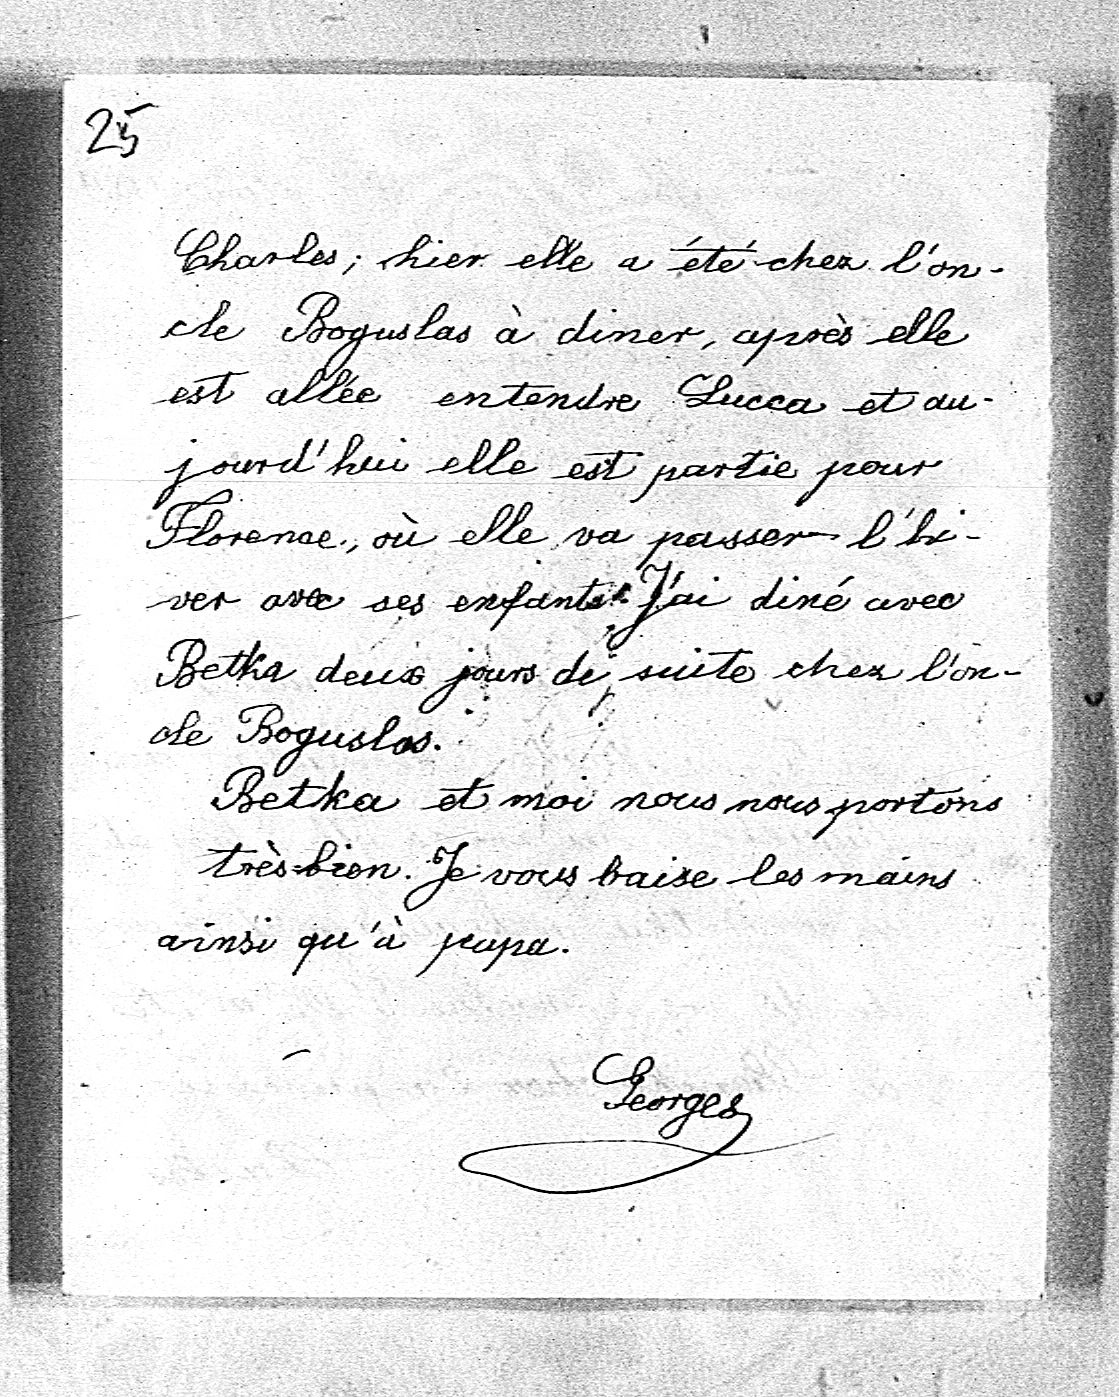 25
Charles; hier elle a été chez l'on-
cle Boguslas à diner, après elle
est allée entendre Lucca et au-
jourd'hui elle est partie pour
Florence, où elle va passer l'hi-
ver avec ses enfants. J'ai diné avec
Betka deux jours de suite chez l'on-
cle Boguslas.
Betka et moi nous nous portons
très-bien. Je vous baise les mains
ainsi qu'à papa.
Georges